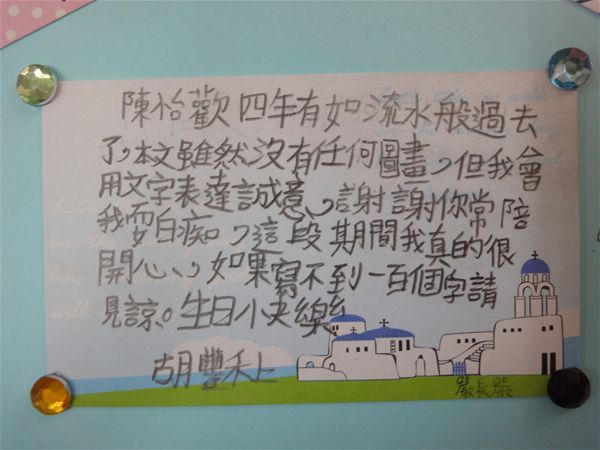 陳怡歡 四年有如流水般過去
了,本文雖然沒有任何圖畫,但我會
用文字表達誠意、,謝謝你常陪
我耍白痴,這段期間我真的很
開心、,如果寫不到一百個字請
見諒。生日小夬樂
胡豐禾上
嚴長